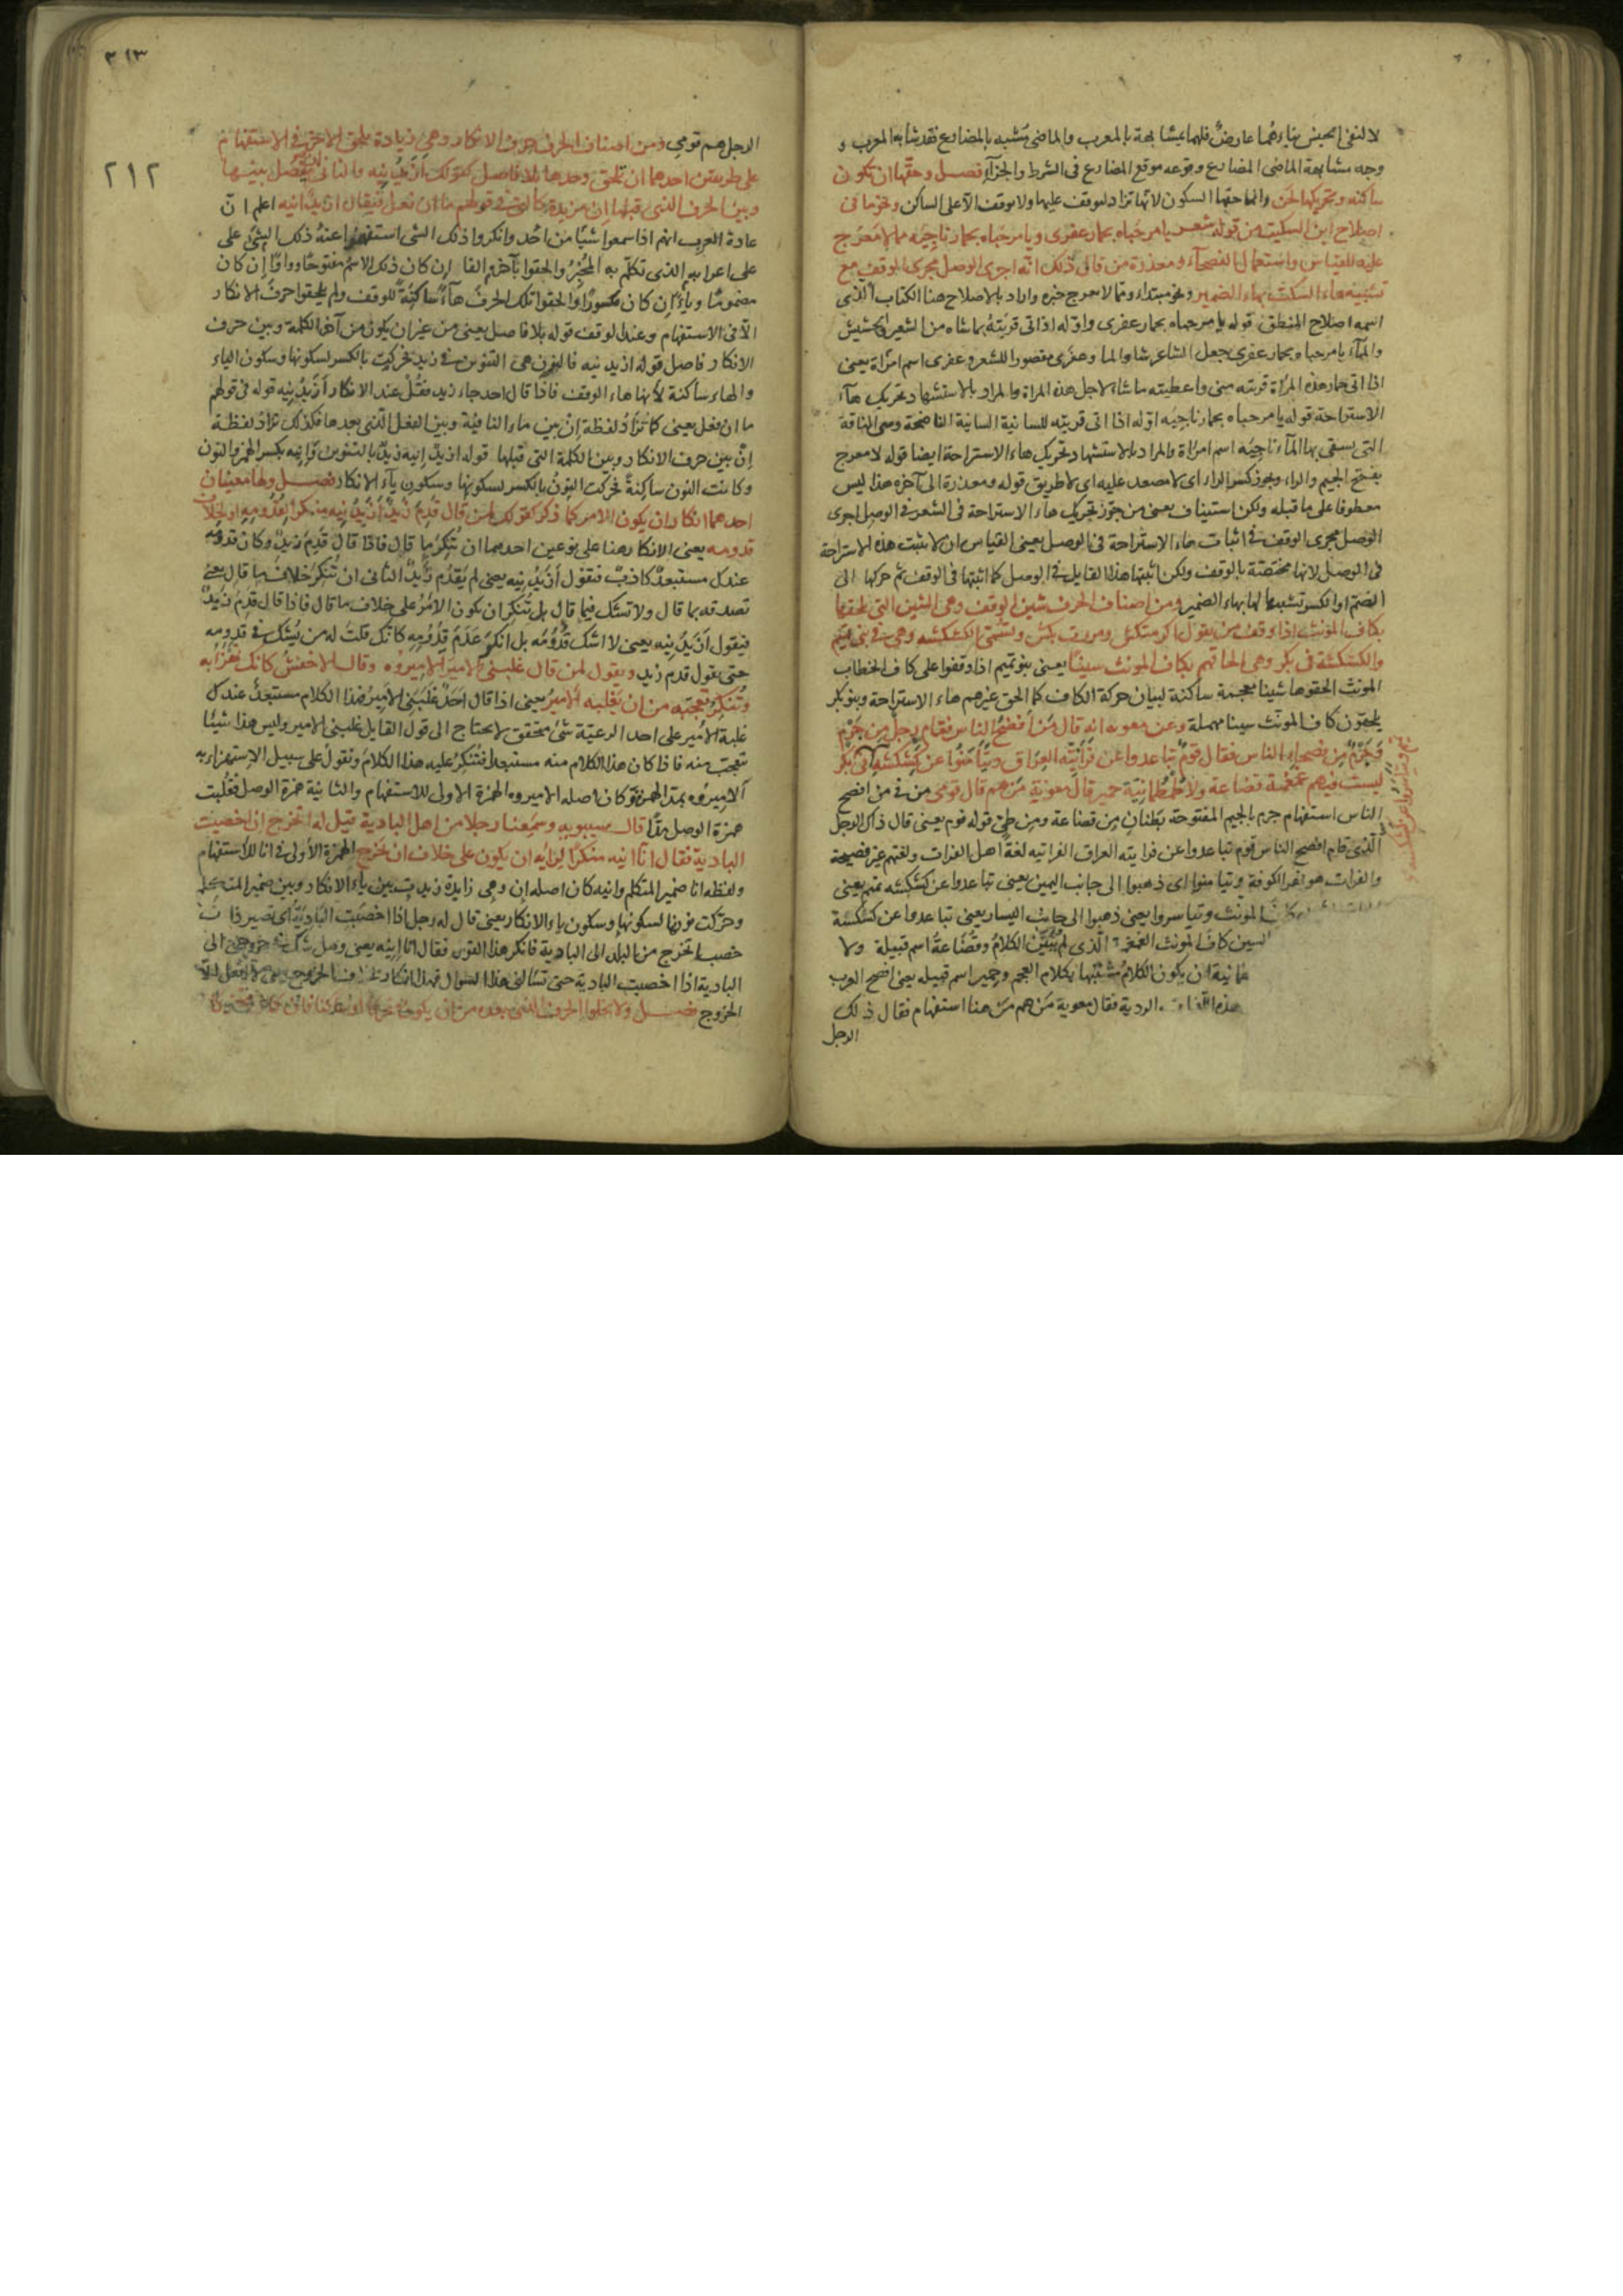 لا لنفى الجنس بناءهما عارضٌ فلهما مشابهة بالمعرب والماضى مشبه بالمضارع فقد شابه المعرب و
وجه مشابهة الماضى المضارع وقوعه موقع المضارع فى الشرط والجزآء فصل وحقها ان تكون
ساكنه وتحريكها لحن وانما حقها السكون لانها تزاد ليوقف عليها ولا يوقف الا على الساكن ونحو ما فى
اصلاح ابن السكيت من قوله شعر يا مرحباه بحمار عفرى ويا مرحباه بحمار ناجيه مما لا معرج
عليه للقياس واستعمال الفصحآء ومعذرة من قال ذلك انه اجرى الوصل مجرى الوقف مع
تشبيه هاء السكت بهاء الضمير ونحو مبتداء ومما لا معرج خبره واراد بالاصلاح هنا الكتاب الذى
اسمه اصلاح المنطق قوله يا مرحباه بحمار عفرى واوّله اذا اتى قربته بما شاه من الشعير والحشيش
والمآء يا مرحبا وبحمار عفرى جعل الشاعر شا والما وعفرى مقصورا للشعر وعفرى اسم امرأة يعنى
اذا اتى حمار هذه المراة قربته منى واعطيته ما شاء لاجل هذه المراة والمراد بالاستشهاد تحريك هآء
الاستراحة قوله يا مرحباه بحمار ناجيه اوّله اذا اتى قربته للسانية السانية الناضحة وهى الناقة
التى يسقى بها المآء ناجيه اسم امرأة والمراد بالاستشهاد تحريك هاء الاستراحة ايضا قوله لا معرج
بفتح الجيم والراء ويجوز كسر الراء اى لا مصعد عليه اى لا طريق قوله ومعذرة الى آخره هذا ليس
معطوفا على ما قبله ولكن استيناف يعنى من جوّز تحريك هاء الاستراحة فى الشعر فى الوصل اجرى
الوصل مجرى الوقف فى اثبات هاء الاستراحة فى الوصل يعنى القياس ان لا يثبت هذه الاستراحة
فى الوصل لانها مختصّة بالوقف ولكن اثبتها هذا القايل فى الوصل كما اثبتها فى الوقف ثم حركها الى
الضم او الكسر تشبيها لها بهاء الضمير ومن اصناف الحرف شين الوقف وهى الشين التى تلحقها
بكاف المونث اذا وقف من يقول اكرمتكش ومررت بكش وتسمى الكشكشه وهى فى بنى تميم
والكسكسة فى بكر وهى الحاقهم بكاف المونث سينا يعنى بنو تميم اذا وقفوا على كاف الخطاب
المونث الحقوها شينا معجمة ساكنة لبيان حركة الكاف كما الحق غيرهم هاء الاستراحة وبنو بكر
يلحقون كاف المونث سينا مهملة وعن معوية انه قال من افصح الناس فقام رجل من جرم
وجرم من فصحاء الناس فقال قوم تباعدوا عن فراتيّة العراق وتيامنوا عن كشكشة تميم
ليست فيهم غمغمة قضاعة ولا طمطمانيّة حمير قال معوية من هم قال قومى من فى من افصح
الناس استفهام جرم بالجيم المفتوحة بطنان من قضاعة ومن طىّ قوله قوم يعنى قال ذاك الرجل
الّذى قام افصح الناس قوم تباعدوا عن فراتيه العراق الفراتيه لغة اهل الفرات ولغتهم غير فصيحة
والفرات هو نهر الكوفة وتيامنوا اى ذهبوا الى جانب اليمين يعنى تباعدوا عن كشكشه تميم يعنى
كاف المونث وتياسروا يعنى ذهبوا الى جانب اليسار يعنى تباعدوا عن كسكسة
السين كاف المونث الغمغمة الّذى لم يُبيّن الكلام وقضاعة اسم قبيلة ولا
ان يكون الكلام مشتبها بكلام العجم وحمير اسم قبيله يعنى افصح العرب
هذه اللغات الردية فقال معوية من هم من هنا استفهام فقال ذلك
الرجل
٣١٣
٢١٢
الرجل هم قومى ومن اصناف الحرف حرف الانكار وهى زيادة تلحق الاخر فى الاستفهام
على طريقين احدهما ان تلحق وحدها بلا فاصل كقولك أزيدُنيه والثانى ان يفصل بينها
وبين الحرف الذى قبلها ان مزيدة كالتى فى قولهم ما ان فعل فيقال ازيدٌ انيه اعلم ان
عادة العرب انهم اذا سمعوا شيئا من احد وانكروا ذلك الشى استفهموا عنه ذلك الشئ على
على اعرابه الذى تكلّم به المخبر والحقوا بآخره الفا ان كان ذلك الاسم مفتوحًا وواوًا ان كان
مضمومًا وياءً ان كان مكسورًا والحقوا تلك الحرف هآءً ساكنةً للوقف ولم يلحقوا حرف الانكار
الّا فى الاستفهام وعند الوقف قوله بلا فاصل يعنى من غير ان يكون من آخر الكلمة وبين حرف
الانكار فاصل قوله ازيد نيه فالنون هى التنوين فى زيد فحركت بالكسر لسكونها وسكون الياء
والهاء ساكنة لأنها هاء الوقف فاذا قال احد جاء زيد فقل عند الانكار أزيدُنيه قوله فى قولهم
ما ان فعل يعنى كما تزاد لفظة إن بين ماء النافيه وبين الفعل الّذى بعدها فكذلك تزاد لفظة
إن بين حرف الانكار وبين الكلمة التى قبلها قوله ازيدٌ إنيه زيدٌ بالتنوين وإنيه بكسر الهمزة والنون
وكانت النون ساكنةً فحركت النون بالكسر لسكونها وسكون يآء الانكار فصل ولها معنيان
احدهما انكار ان يكون الامر كما ذكر كقولك لمن قال قدم زيدٌ أزيدُنيه منكرًا لقدومه او لخلاف
قدومه يعنى الانكار هنا على نوعين احدهما ان تنكر ما قال فاذا قال قدم زيدٌ وكان قدومه
عندك مستبعدٌ كاذبٌ فتقول أزيدُنيه يعنى لم يقدم زيدٌ الثانى ان تنكر خلاف ما قال يعنى
تصدقه بما قال ولا تشك فيما قال بل تنكر ان يكون الامر على خلاف ما قال فاذا قال قدم زيدٌ
فيقول أزيدُنيه يعنى لا اشك قدومه بل انكر عدم قدومه كانّك قلت له من يشك فى قدومه
حتى يقول قدم زيد ويقول لمن قال غلبنى الامير الاميروه وقال الاخفش كانك تهزأ به
وتنكر تعجبه من ان يغلبه الامير يعنى اذا قال احدٌ غلبنى الامير فهذا الكلام مستبعدٌ عندك
غلبة الامير على احد الرعيّة شئ متحقق لا يحتاج الى قول القايل غلبنى الامير وليس هذا شيئا
تعجب منه فاذا كان هذا الكلام منه مستبعدا فتنكر عليه هذا الكلام وتقول على سبيل الاستهزاء به
آلاميروه بمد الهمزة وكان اصله الاميروه الهمزة الاولى للاستفهام والثانية همزة الوصل فقلبت
همزة الوصل مدًّا قال سيبويه وسمعنا رجلا من اهل البادية قيل له اتخرج ان اخصبت
البادية فقال انا انيه منكرًا لرايه ان يكون على خلاف ان يخرج الهمزة الاولى فى انا للاستفهام
ولفظه انا ضمير المتكلم وانيه كان اصله إن وهى زايدة زيدت بين ياء الانكار وبين ضمير المتكلم
وحرّكت نونها لسكونها وسكون ياء الانكار يعنى قال له رجل اذا اخصبت البادية اى تصير ذات
خصب اتخرج من البلد الى البادية فانكر هذا القول فقال انا إنيه يعنى وهل شك فى خروجى الى
البادية اذا اخصبت البادية حتى تسألنى هذا السوال فهذا انكار
الخروج فصل ولا يخلوا الحرف الذى بعده من ان يكون متحركا او ساكنا فان كان متحركا